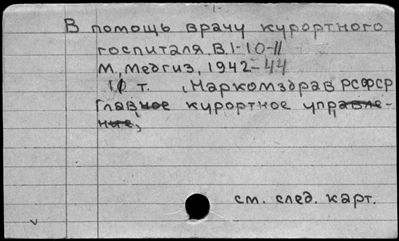 В помощь врачу курортного
госпиталя. В.1-10-11
М., Медгиз, 1942-44
10 т. (Наркомздрав РСФСР
Главное курортное управле-
ние)
см. след. карт.